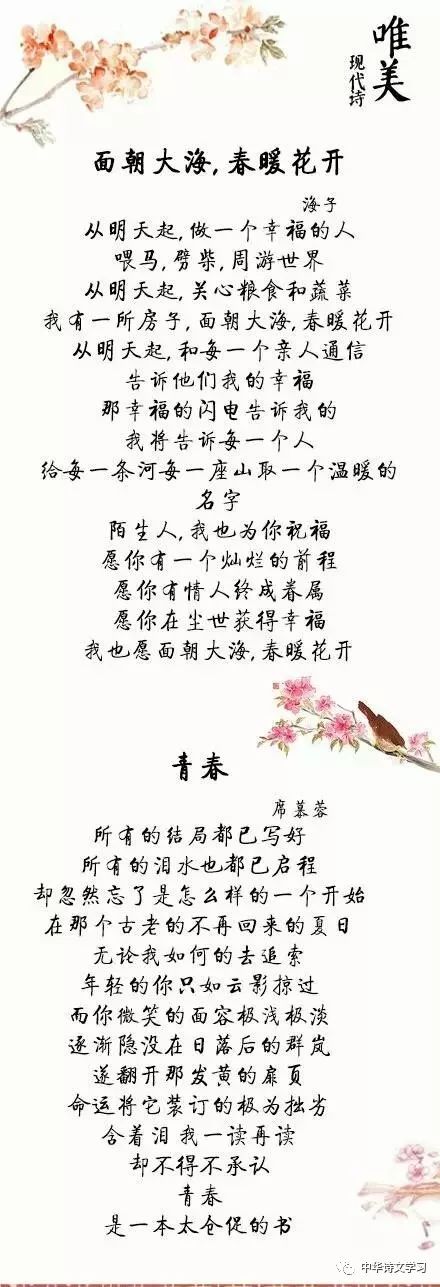 唯美
现代诗
面朝大海,春暖花开
海子
从明天起,做一个幸福的人
喂马,劈柴,周游世界
从明天起,关心粮食和蔬菜
我有一所房子,面朝大海,春暖花开
从明天起,和每一个亲人通信
告诉他们我的幸福
那幸福的闪电告诉我的
我将告诉每一个人
给每一条河每一座山取一个温暖的
名字
陌生人,我也为你祝福
愿你有一个灿烂的前程
愿你有情人终成眷属
愿你在尘世获得幸福
我也愿面朝大海,春暖花开
青春
席慕蓉
所有的结局都已写好
所有的泪水也都已启程
却忽然忘了是怎么样的一个开始
在那个古老的不再回来的夏日
无论我如何的去追索
年轻的你只如云影掠过
而你微笑的面容极浅极淡
逐渐隐没在日落后的群岚
遂翻开那发黄的扉页
命运将它装订的极为拙劣
含着泪 我一读再读
却不得不承认
青春
是一本太仓促的书
中华诗文学习